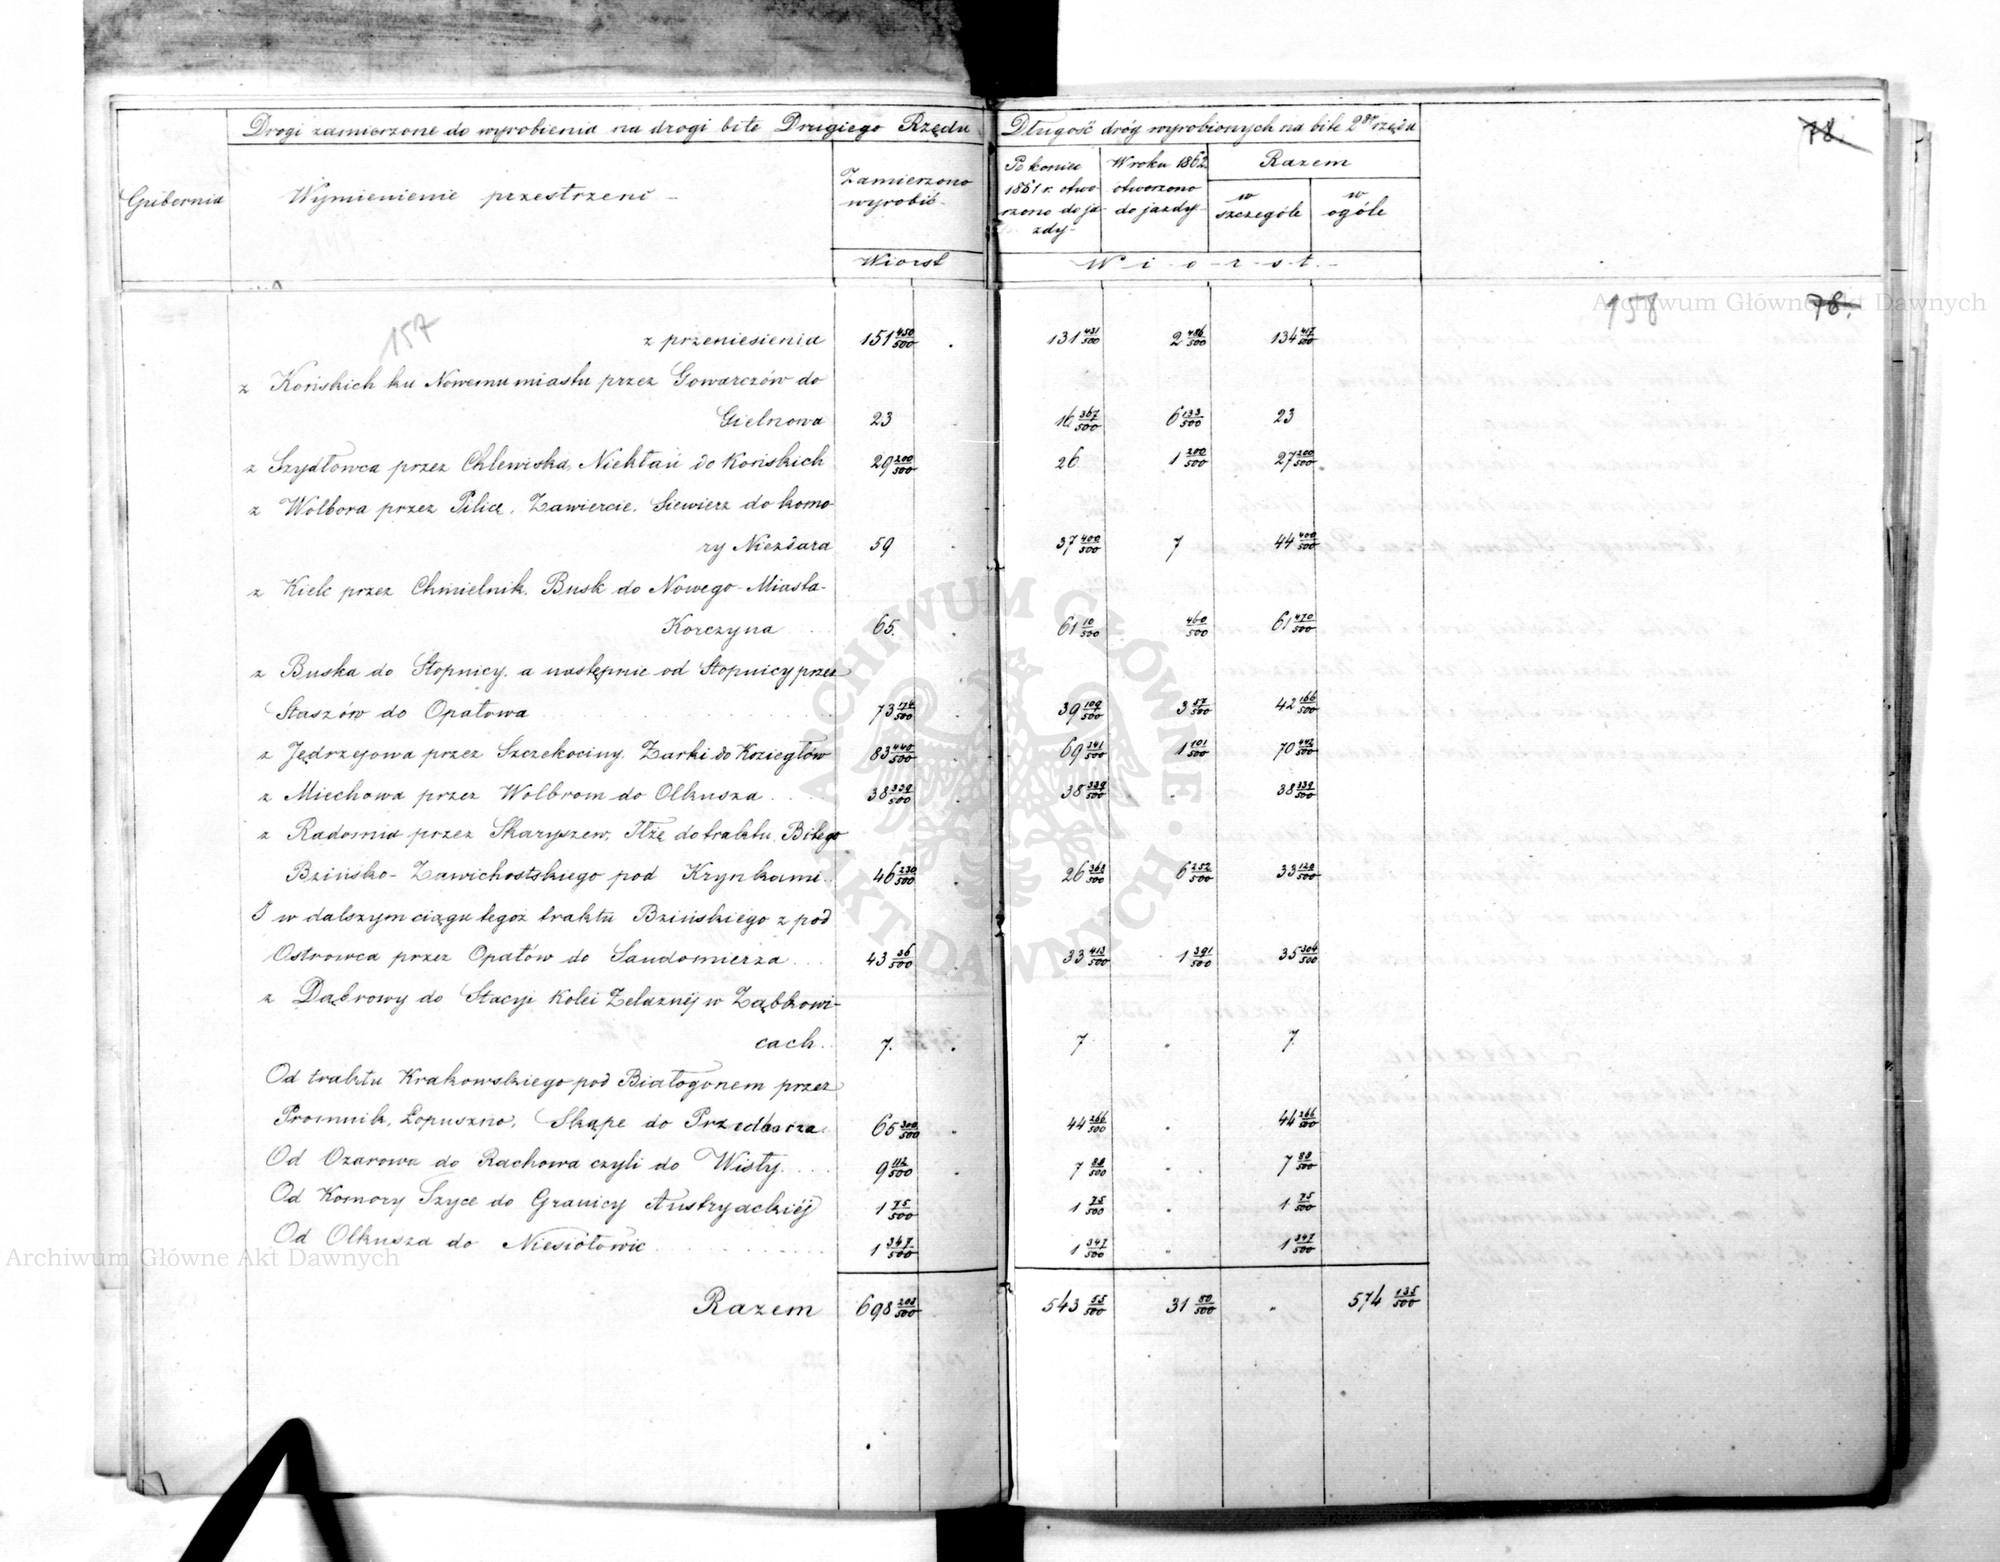 Drogi zamierzone do wyrobienia na drogi bite Drugiego Rzędu
Długość dróg wyrobionych na bite 2go rzędu
78.
Gubernia
Wymienienie przestrzeni
Zamierzono wyrobić
Po koniec 1861 r. otworzono do jazdy
W roku 1862 otworzono do jazdy
Razem
w szczególe
w ogóle
Wiorst
Wiorst
157
158
78.
z przeniesienia 151 450/500 131 431/500 2 486/500 134 417/500
z Końskich ku Nowemu miastu przez Gowarczów do
Gielnowa 23 16 367/500 6 133/500 23
z Szydłowca przez Chlewiska, Niekłań do Końskich 29 200/500 26 1 200/500 27 200/500
z Wolbora przez Pilicę, Zawiercie, Siewierz do komo-
ry Niezdara 59 37 400/500 7 44 400/500
z Kielc przez Chmielnik, Busk do Nowego-Miasta-
Korczyna 65. 61 10/500 460/500 61 470/500
z Buska do Stopnicy, a następnie od Stopnicy przez
Staszów do Opatowa 73 174/500 39 109/500 3 57/500 42 166/500
z Jędrzejowa przez Szczekociny, Żarki do Koziegłów 83 440/500 69 341/500 1 101/500 70 442/500
z Miechowa przez Wolbrom do Olkusza 38 339/500 38 339/500 38 339/500
z Radomia przez Skaryszew, Iłżę do traktu Bitego
Bzińsko-Zawichostskiego pod Krynkami 46 230/500 26 368/500 6 252/500 33 120/500
I w dalszym ciągu tegoż traktu Bzińskiego z pod
Ostrowca przez Opatów do Sandomierza 43 36/500 33 413/500 1 391/500 35 304/500
z Dąbrowy do Stacyi Kolei Żelaznéj w Ząbkowi-
cach 7. 7 7
Od traktu Krakowskiego pod Białogonem przez
Promnik, Łopuszno, Skąpe do Przedborza 65 300/500 44 266/500 44 266/500
Od Ożarowa do Rachowa czyli do Wisły 9 112/500 7 88/500 7 88/500
Od Komory Szyce do Granicy Austryackiéj 1 75/500 1 75/500 1 75/500
Od Olkusza do Niesiołowic 1 347/500 1 347/500 1 347/500
Razem 698 203/500 543 55/500 31 80/500 574 135/500
Archiwum Główne Akt Dawnych
Archiwum Główne Akt Dawnych
ARCHIWUM GŁÓWNE AKT DAWNYCH